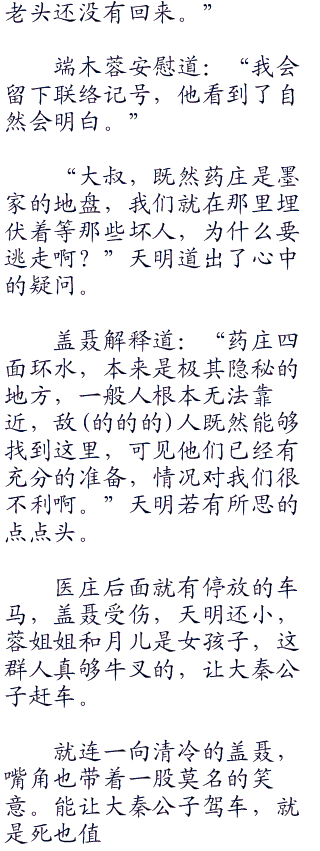 老头还没有回来。”
端木蓉安慰道：“我会
留下联络记号，他看到了自
然会明白。”
“大叔，既然药庄是墨
家的地盘，我们就在那里埋
伏着等那些坏人，为什么要
逃走啊？”天明道出了心中
的疑问。
盖聂解释道：“药庄四
面环水，本来是极其隐秘的
地方，一般人根本无法靠
近，敌(的的的)人既然能够
找到这里，可见他们已经有
充分的准备，情况对我们很
不利啊。”天明若有所思的
点点头。
医庄后面就有停放的车
马，盖聂受伤，天明还小，
蓉姐姐和月儿是女孩子，这
群人真够牛叉的，让大秦公
子赶车。
就连一向清冷的盖聂，
嘴角也带着一股莫名的笑
意。能让大秦公子驾车，就
是死也值